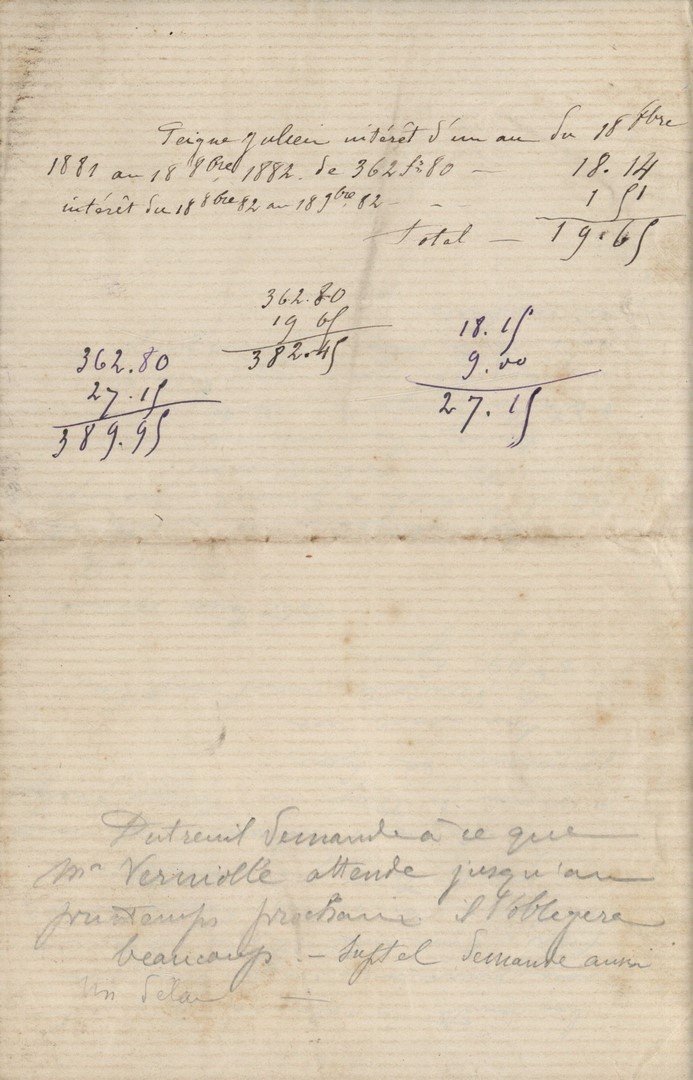 Teigne Julien intérêt d'un an du 18 8bre
1881 au 18 8bre 1882. de 362 fr 80 — 18.14
intérêt du 18 8bre 82 au 18 9bre 82 - - 1 51
Total — 19.65
362.80
19 65
382.45
362.80
27.15
389.95
18.15
9.00
27.15
Dutreuil demande à ce que
Mr Verniolle attende jusqu'au
printemps prochain il l'obligera
beaucoup. — demande aussi
un délai —